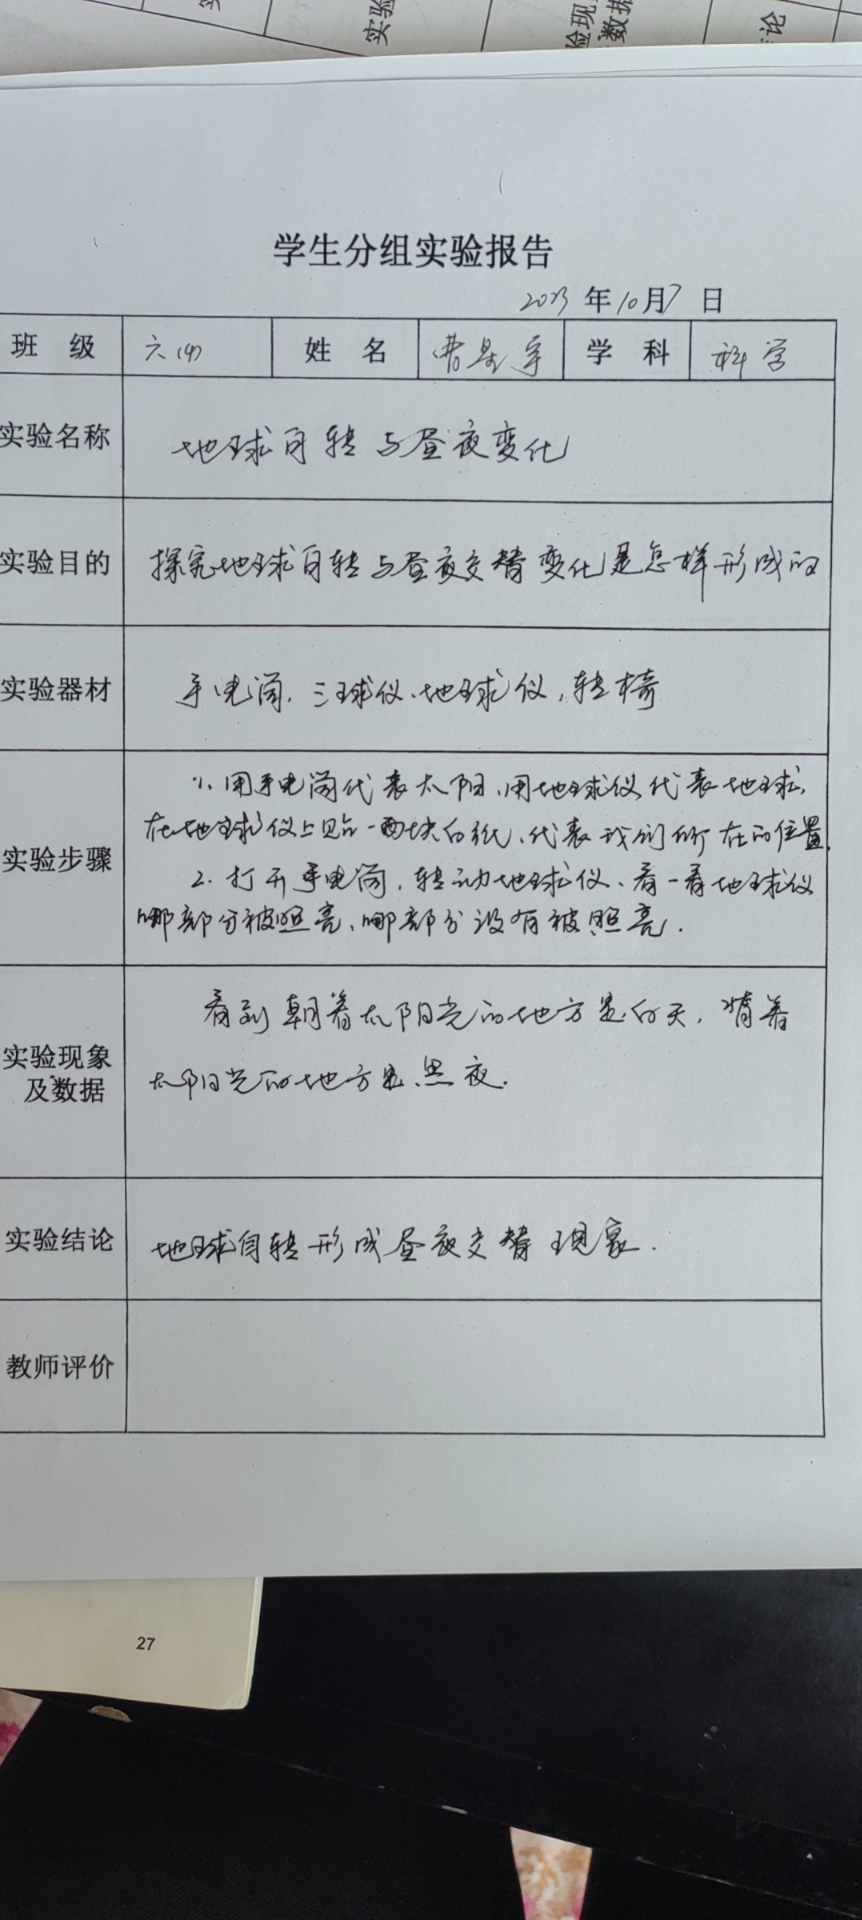 实验
验现
数据
论
学生分组实验报告
2023年10月7日
班级 六(4) 姓名 曹星宇 学科 科学
实验名称 地球自转与昼夜变化
实验目的 探究地球自转与昼夜交替变化是怎样形成的
实验器材 手电筒、三球仪、地球仪,转椅
实验步骤
1、用手电筒代表太阳,用地球仪代表地球,
在地球仪上贴一两块白纸、代表我们所在的位置.
2、打开手电筒,转动地球仪、看一看地球仪
哪部分被照亮、哪部分没有被照亮.
实验现象
及数据
看到朝着太阳光的地方是白天,背着
太阳光的地方是黑夜.
实验结论 地球自转形成昼夜交替现象.
教师评价
27